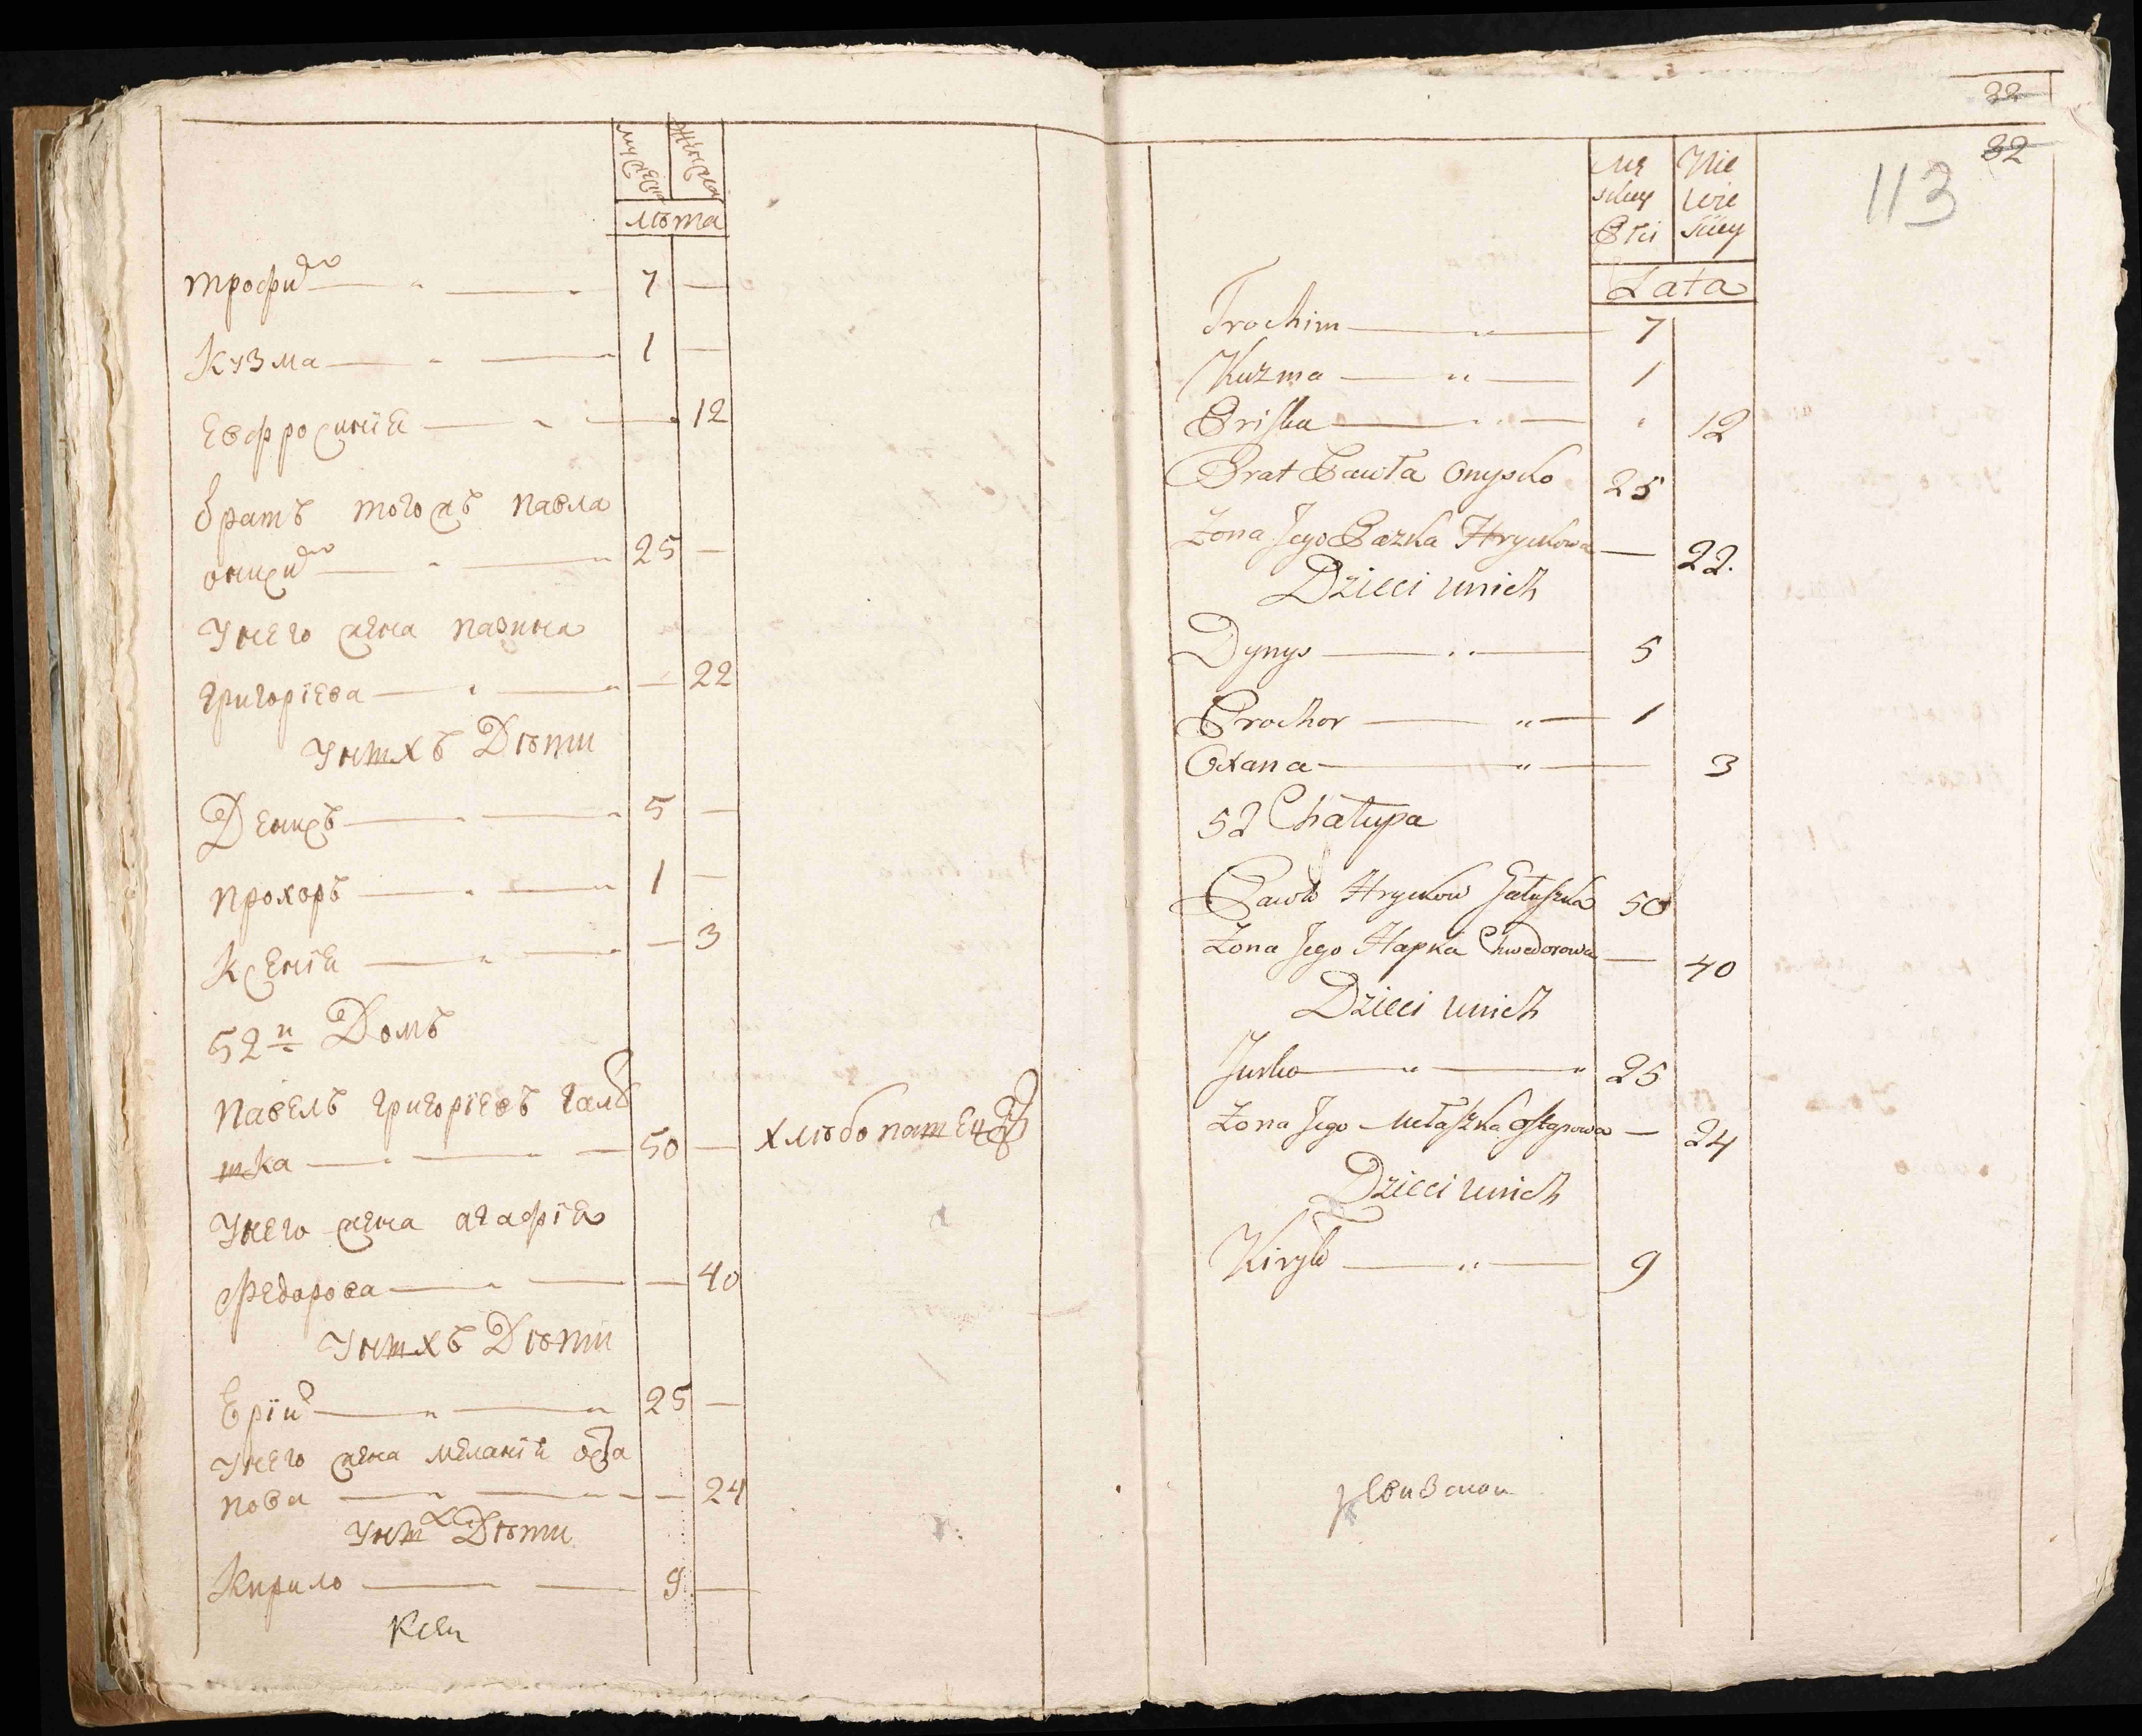 мужеска женска
лѣта
трофим 7 —
Кузма 1 —
Евфросинїя 12
братъ тогожъ павла
онисим 25 —
Унего жена пазина
григорїева — 22
Унихъ Дѣти
Денисъ 5 —
прохоръ 1 —
Ксенїя — 3
52й Домъ
павелъ григорїевъ галу
шка 50 — хлѣбопашець
Унего жена агафїя
Федорова — 40
Унихъ Дѣти
Ерїй 25 —
Унего жена меланїя оста
пова — 24
Уних Дѣти
Кирило 9 —
32
32
113
Mę Nie
skiey wie
Płci sciey
Lata
Trochim — „ — 7
Kuzma — „ — 1
Priska — „ — „ 12
Brat Pawła Onysko 25
Zona Jego Pazka Hryckowa — 22.
Dzieci unich
Dynys — „ — 5
Prochor — „ — 1
Oxana — „ — 3
52 Chałupa
Pawło Hryckow Gałuszka 50
Zona Jego Hapka Chwedorowa — 40
Dzieci unich
Jurko — „ — „ 25
Zona Jego Mełaszka Ostapowa — 24
Dzieci unich
Kiryło — „ — 9